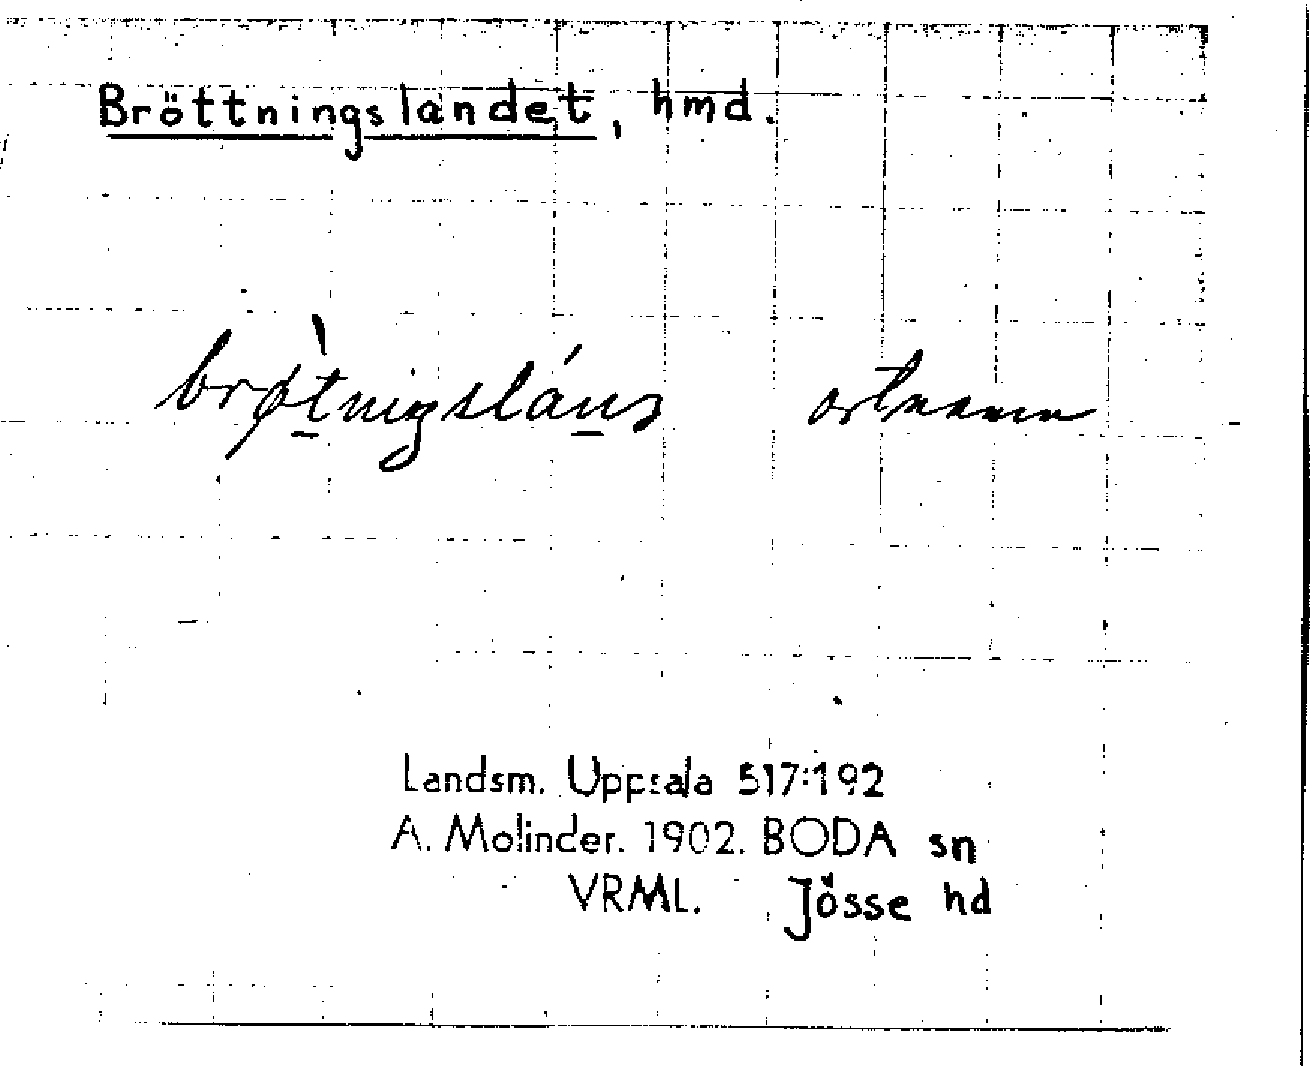 Bröttningslandet, hmd.
brøtnigsláns ortnamn
Landsm. Uppsala 517:192
A. Molinder. 1902. BODA sn
VRML. Jösse hd